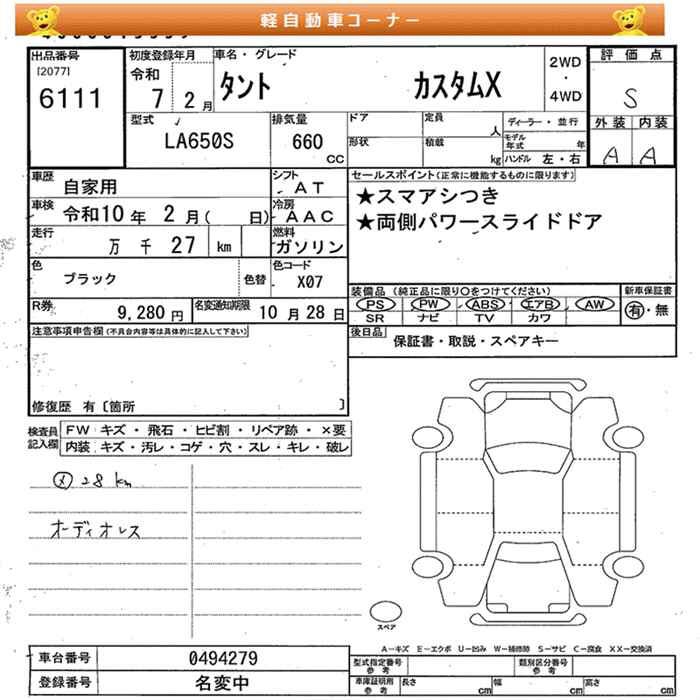 軽自動車コーナー
出品番号
[2077]
6111
初度登録年月
令和
7 2月
車名・グレード
タント カスタムX
2WD
・
4WD
評価点
S
外装 内装
A A
型式
LA650S
排気量
660
CC
ドア
定員
人
形状
積載
kg
ディーラー・並行
モデル年式 年
ハンドル 左・右
車歴
自家用
シフト
AT
車検
令和10年 2月( 日)
冷房
AAC
走行
万 千 27 km
燃料
ガソリン
色
ブラック
色替
色コード
X07
R券
9,280円
名変通知期限
10月28日
セールスポイント(正常に機能するものに限ります)
★スマアシつき
★両側パワースライドドア
装備品(純正品に限り○をつけてください)
PS PW ABS エアB AW
SR ナビ TV カワ
新車保証書
有・無
後日品
保証書・取説・スペアキー
注意事項申告欄(不具合内容等は具体的に記入して下さい)
修復歴 有〔箇所 〕
検査員記入欄
FW キズ・飛石・ヒビ割・リペア跡・×要
内装 キズ・汚レ・コゲ・穴・スレ・キレ・破レ
メ 28km
オーディオレス
スペア
A-キズ E-エクボ U-凹み W-補修跡 S-サビ C-腐食 XX-交換済
車台番号
0494279
登録番号
名変中
型式指定番号参考
類別区分番号参考
車庫証明用参考
長さ cm
幅 cm
高さ cm